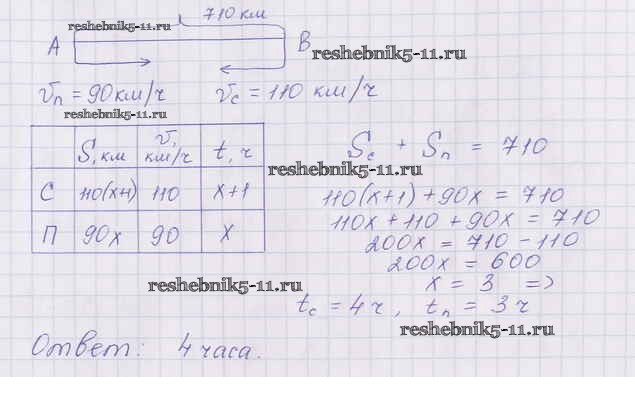 710 км
reshebnik5-11.ru
A B
reshebnik5-11.ru
Vп = 90 км/ч Vc = 110 км/ч
reshebnik5-11.ru
S, км V, км/ч t, ч
С 110(x+1) 110 x+1
П 90x 90 x
Sc + Sп = 710
reshebnik5-11.ru
110(x+1) + 90x = 710
110x + 110 + 90x = 710
200x = 710 - 110
200x = 600
reshebnik5-11.ru
x = 3 =>
tc = 4 ч, tп = 3 ч
reshebnik5-11.ru
Ответ: 4 часа.